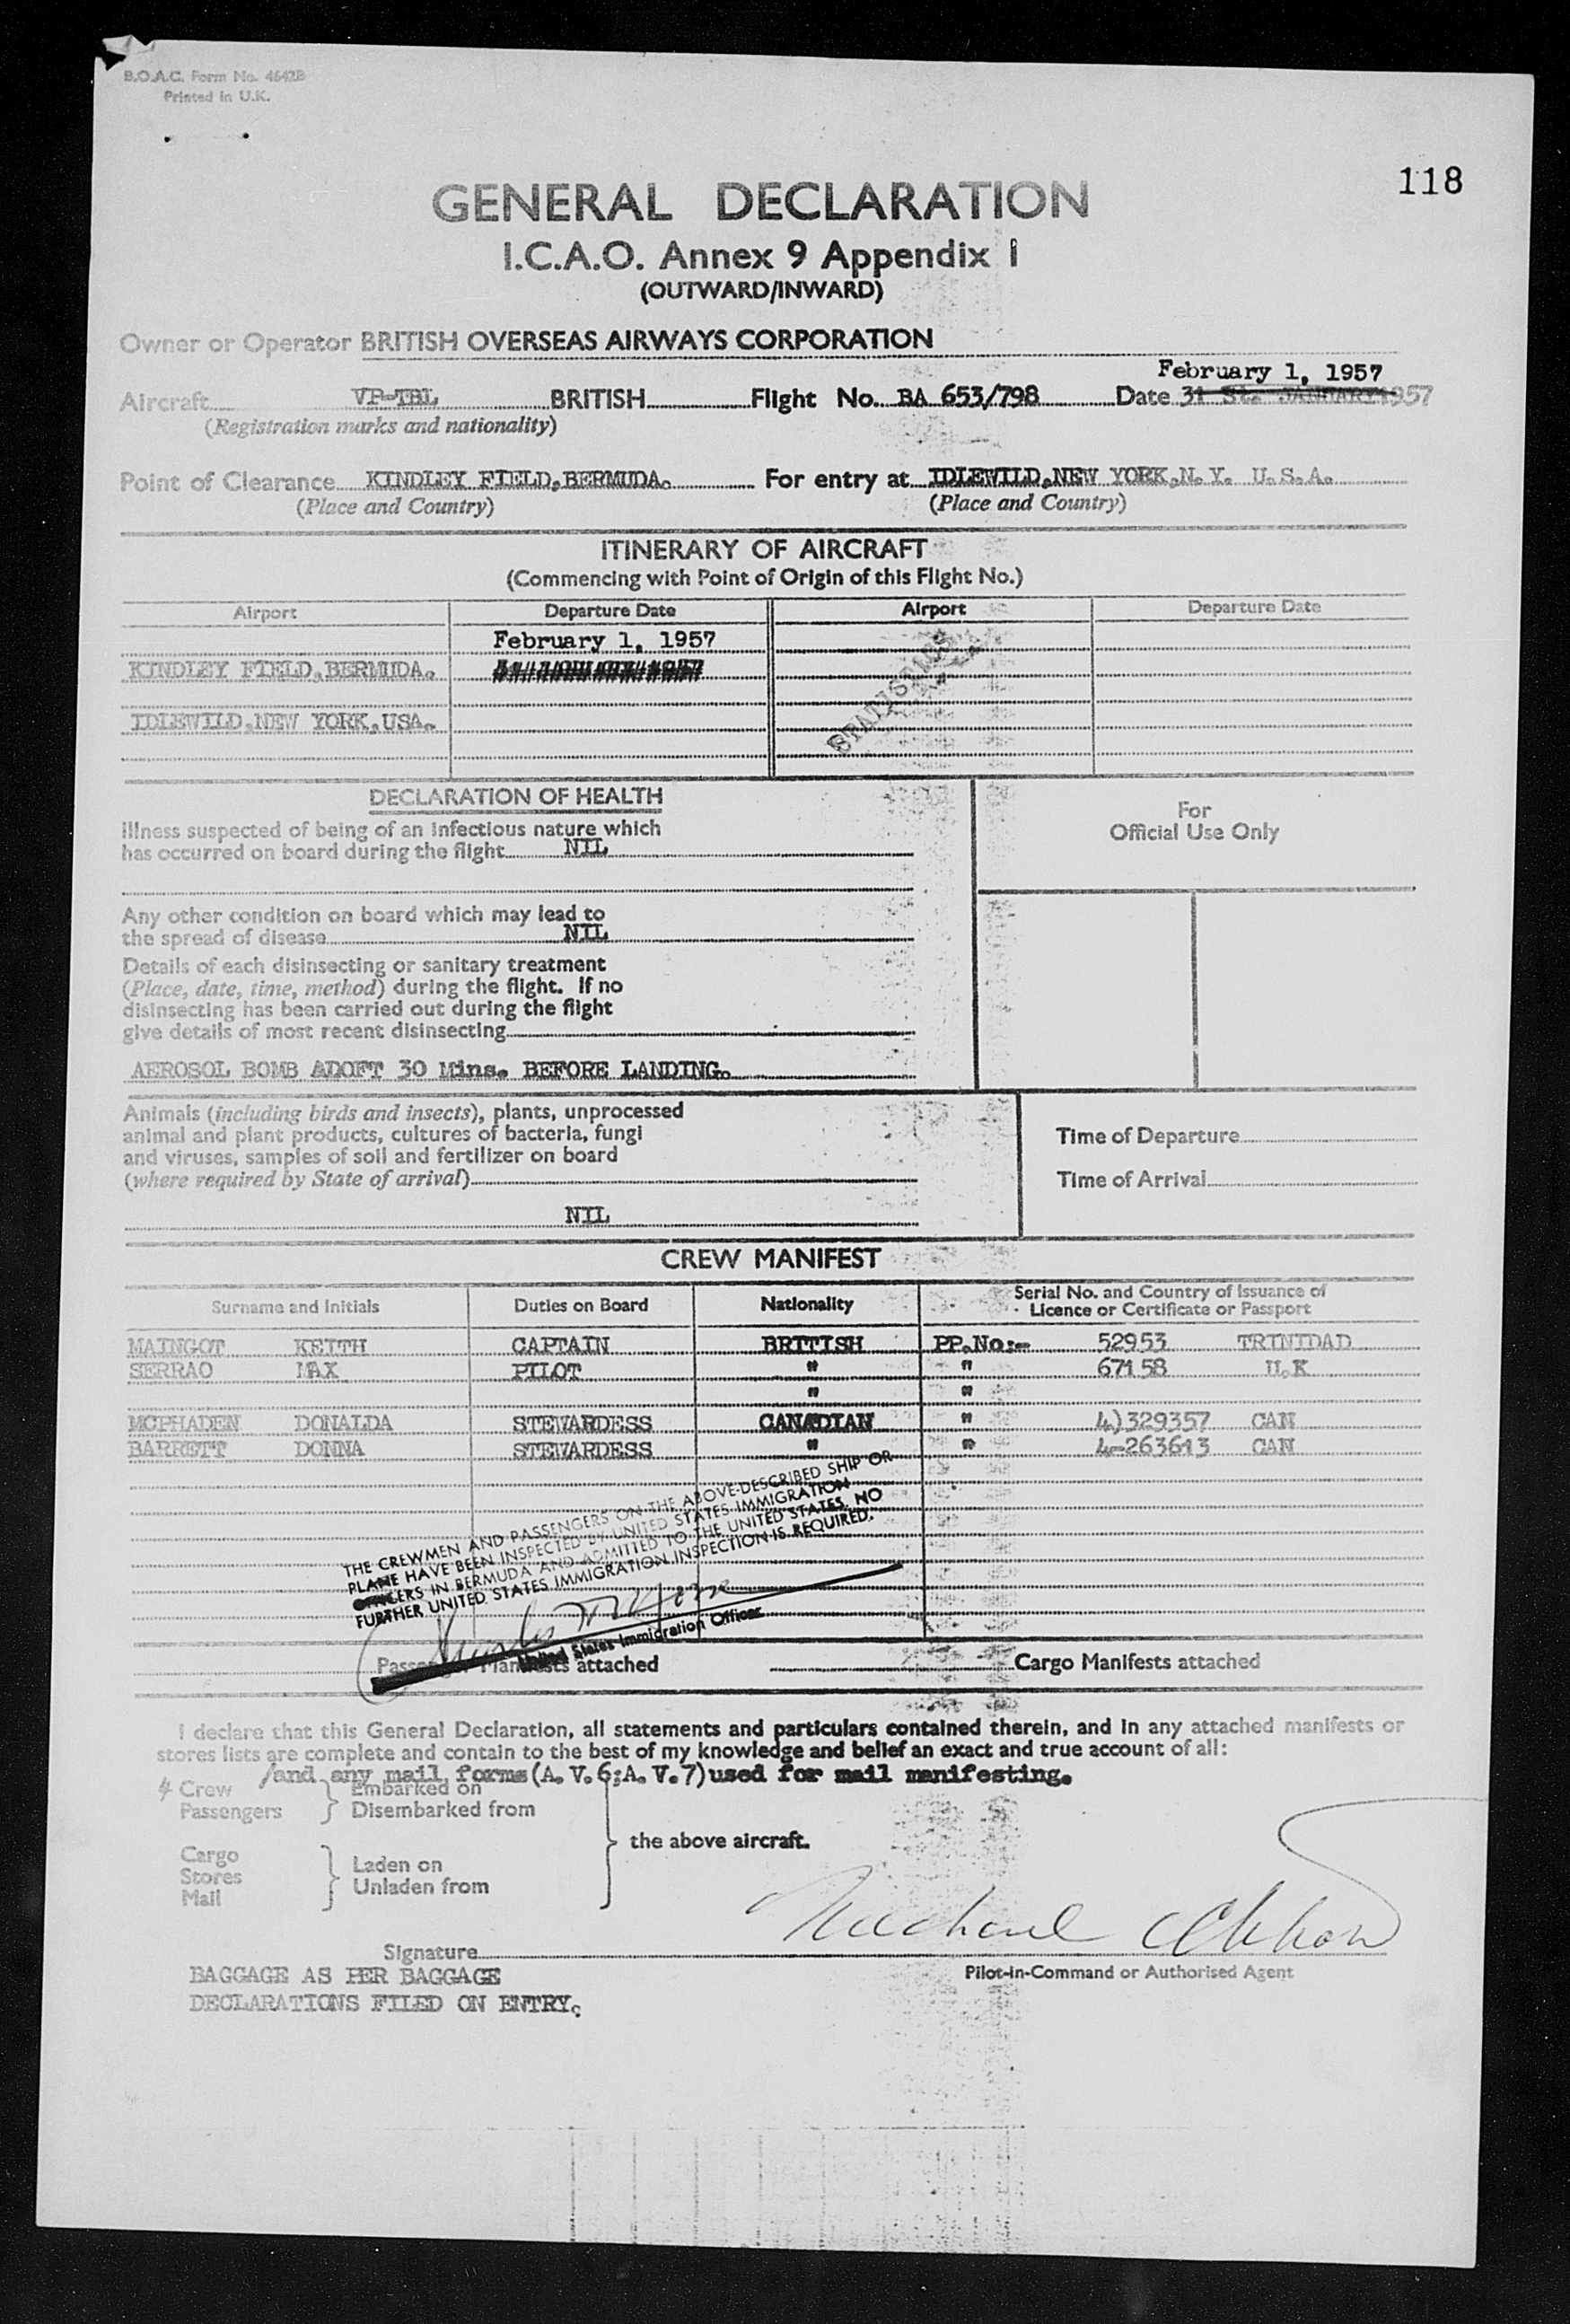 B.O.A.C. Form No. 4642B
Printed in U.K.
118
GENERAL DECLARATION
I.C.A.O. Annex 9 Appendix 1
(OUTWARD/INWARD)
Owner or Operator BRITISH OVERSEAS AIRWAYS CORPORATION
February 1, 1957
Aircraft VP-TBL BRITISH Flight No. BA 653/798 Date 31 St. JANUARY 1957
(Registration marks and nationality)
Point of Clearance KINDLEY FIELD, BERMUDA. For entry at IDLEWILD, NEW YORK, N.Y. U.S.A.
(Place and Country) (Place and Country)
ITINERARY OF AIRCRAFT
(Commencing with Point of Origin of this Flight No.)
Airport Departure Date Airport Departure Date
February 1, 1957
KINDLEY FIELD, BERMUDA.
IDLEWILD, NEW YORK, USA.
STATISTICS
DECLARATION OF HEALTH
For
Official Use Only
Illness suspected of being of an infectious nature which
has occurred on board during the flight NIL
Any other condition on board which may lead to
the spread of disease NIL
Details of each disinsecting or sanitary treatment
(Place, date, time, method) during the flight. If no
disinsecting has been carried out during the flight
give details of most recent disinsecting
AEROSOL BOMB ADOFT 30 Mins. BEFORE LANDING.
Animals (including birds and insects), plants, unprocessed
animal and plant products, cultures of bacteria, fungi
and viruses, samples of soil and fertilizer on board
(where required by State of arrival)
NIL
Time of Departure
Time of Arrival
CREW MANIFEST
Surname and Initials Duties on Board Nationality Serial No. and Country of Issuance of
Licence or Certificate or Passport
MAINGOT KEITH CAPTAIN BRITISH PP.No:- 52953 TRINIDAD
SERRAO MAX PILOT " " 67158 U.K
" "
MCPHADEN DONALDA STEWARDESS CANADIAN " 4)329357 CAN
BARRETT DONNA STEWARDESS " " 4-263613 CAN
THE CREWMEN AND PASSENGERS ON THE ABOVE-DESCRIBED SHIP OR
PLANE HAVE BEEN INSPECTED BY UNITED STATES IMMIGRATION
OFFICERS IN BERMUDA AND ADMITTED TO THE UNITED STATES. NO
FURTHER UNITED STATES IMMIGRATION INSPECTION IS REQUIRED.
United States Immigration Officer
Passenger Manifests attached Cargo Manifests attached
I declare that this General Declaration, all statements and particulars contained therein, and in any attached manifests or
stores lists are complete and contain to the best of my knowledge and belief an exact and true account of all:
/and any mail forms(A.V.6;A.V.7)used for mail manifesting.
4 Crew Embarked on
Passengers Disembarked from
the above aircraft.
Cargo
Stores Laden on
Mail Unladen from
Signature
Pilot-in-Command or Authorised Agent
BAGGAGE AS PER BAGGAGE
DECLARATIONS FILED ON ENTRY.